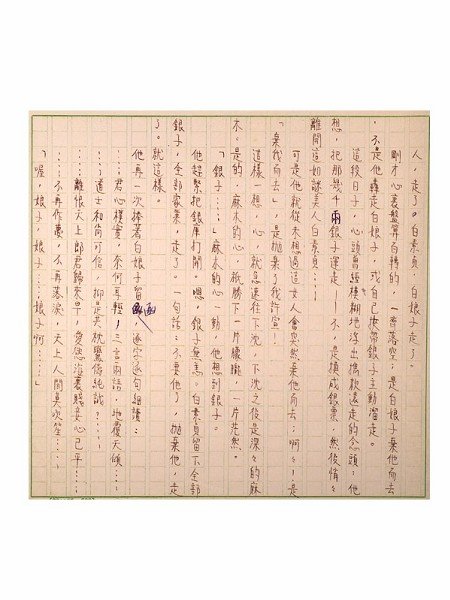 人，走了。白素貞，白娘子走了。
剛才心裏盤算百轉的，一齊落空；是白娘子棄他而去
，不是他轉走白娘子，或自己捲帶銀子主動溜走。
這段日子，心頭曾經模糊地浮出擔款遠走的念頭；他
想，把那幾千兩銀子運走！不，是換成銀票，然後悄々
離開這如謎美人白素貞…！
可是他就從未想過這女人會突然棄他而去；啊々！是
「棄我而去」，是拋棄了我許宣！
這樣一想，心，就急速往下沉，下沉之後是深々的麻
木。是的，麻木的心，祇勝下一片朦朧，一片茫然。
「銀子……」麻木的心一動，他想到銀子。
他趕緊把銀庫打開。嗯，銀子無恙。白素貞留下全部
銀子，全部家業，走了。一句話：不要他了，拋棄他，走
了。就這樣。
他再一次捧著白娘子留函，逐字逐句細讀：
…君心樸實，奈何耳輕，三言兩語，地覆天傾……
…道士和尚可信，抑是夫妻純誠？……
…離恨天上，郎君歸來早，愛慾海裏，妾心已平……
…不再作夢，不再落淚，天上人間莫次筌…
「喔，娘子，娘子……娘子啊……」